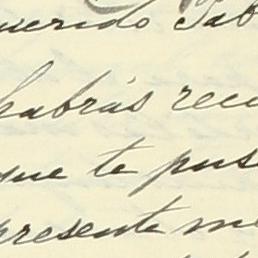 querido Gab
habrás reci
que te pus
presente me